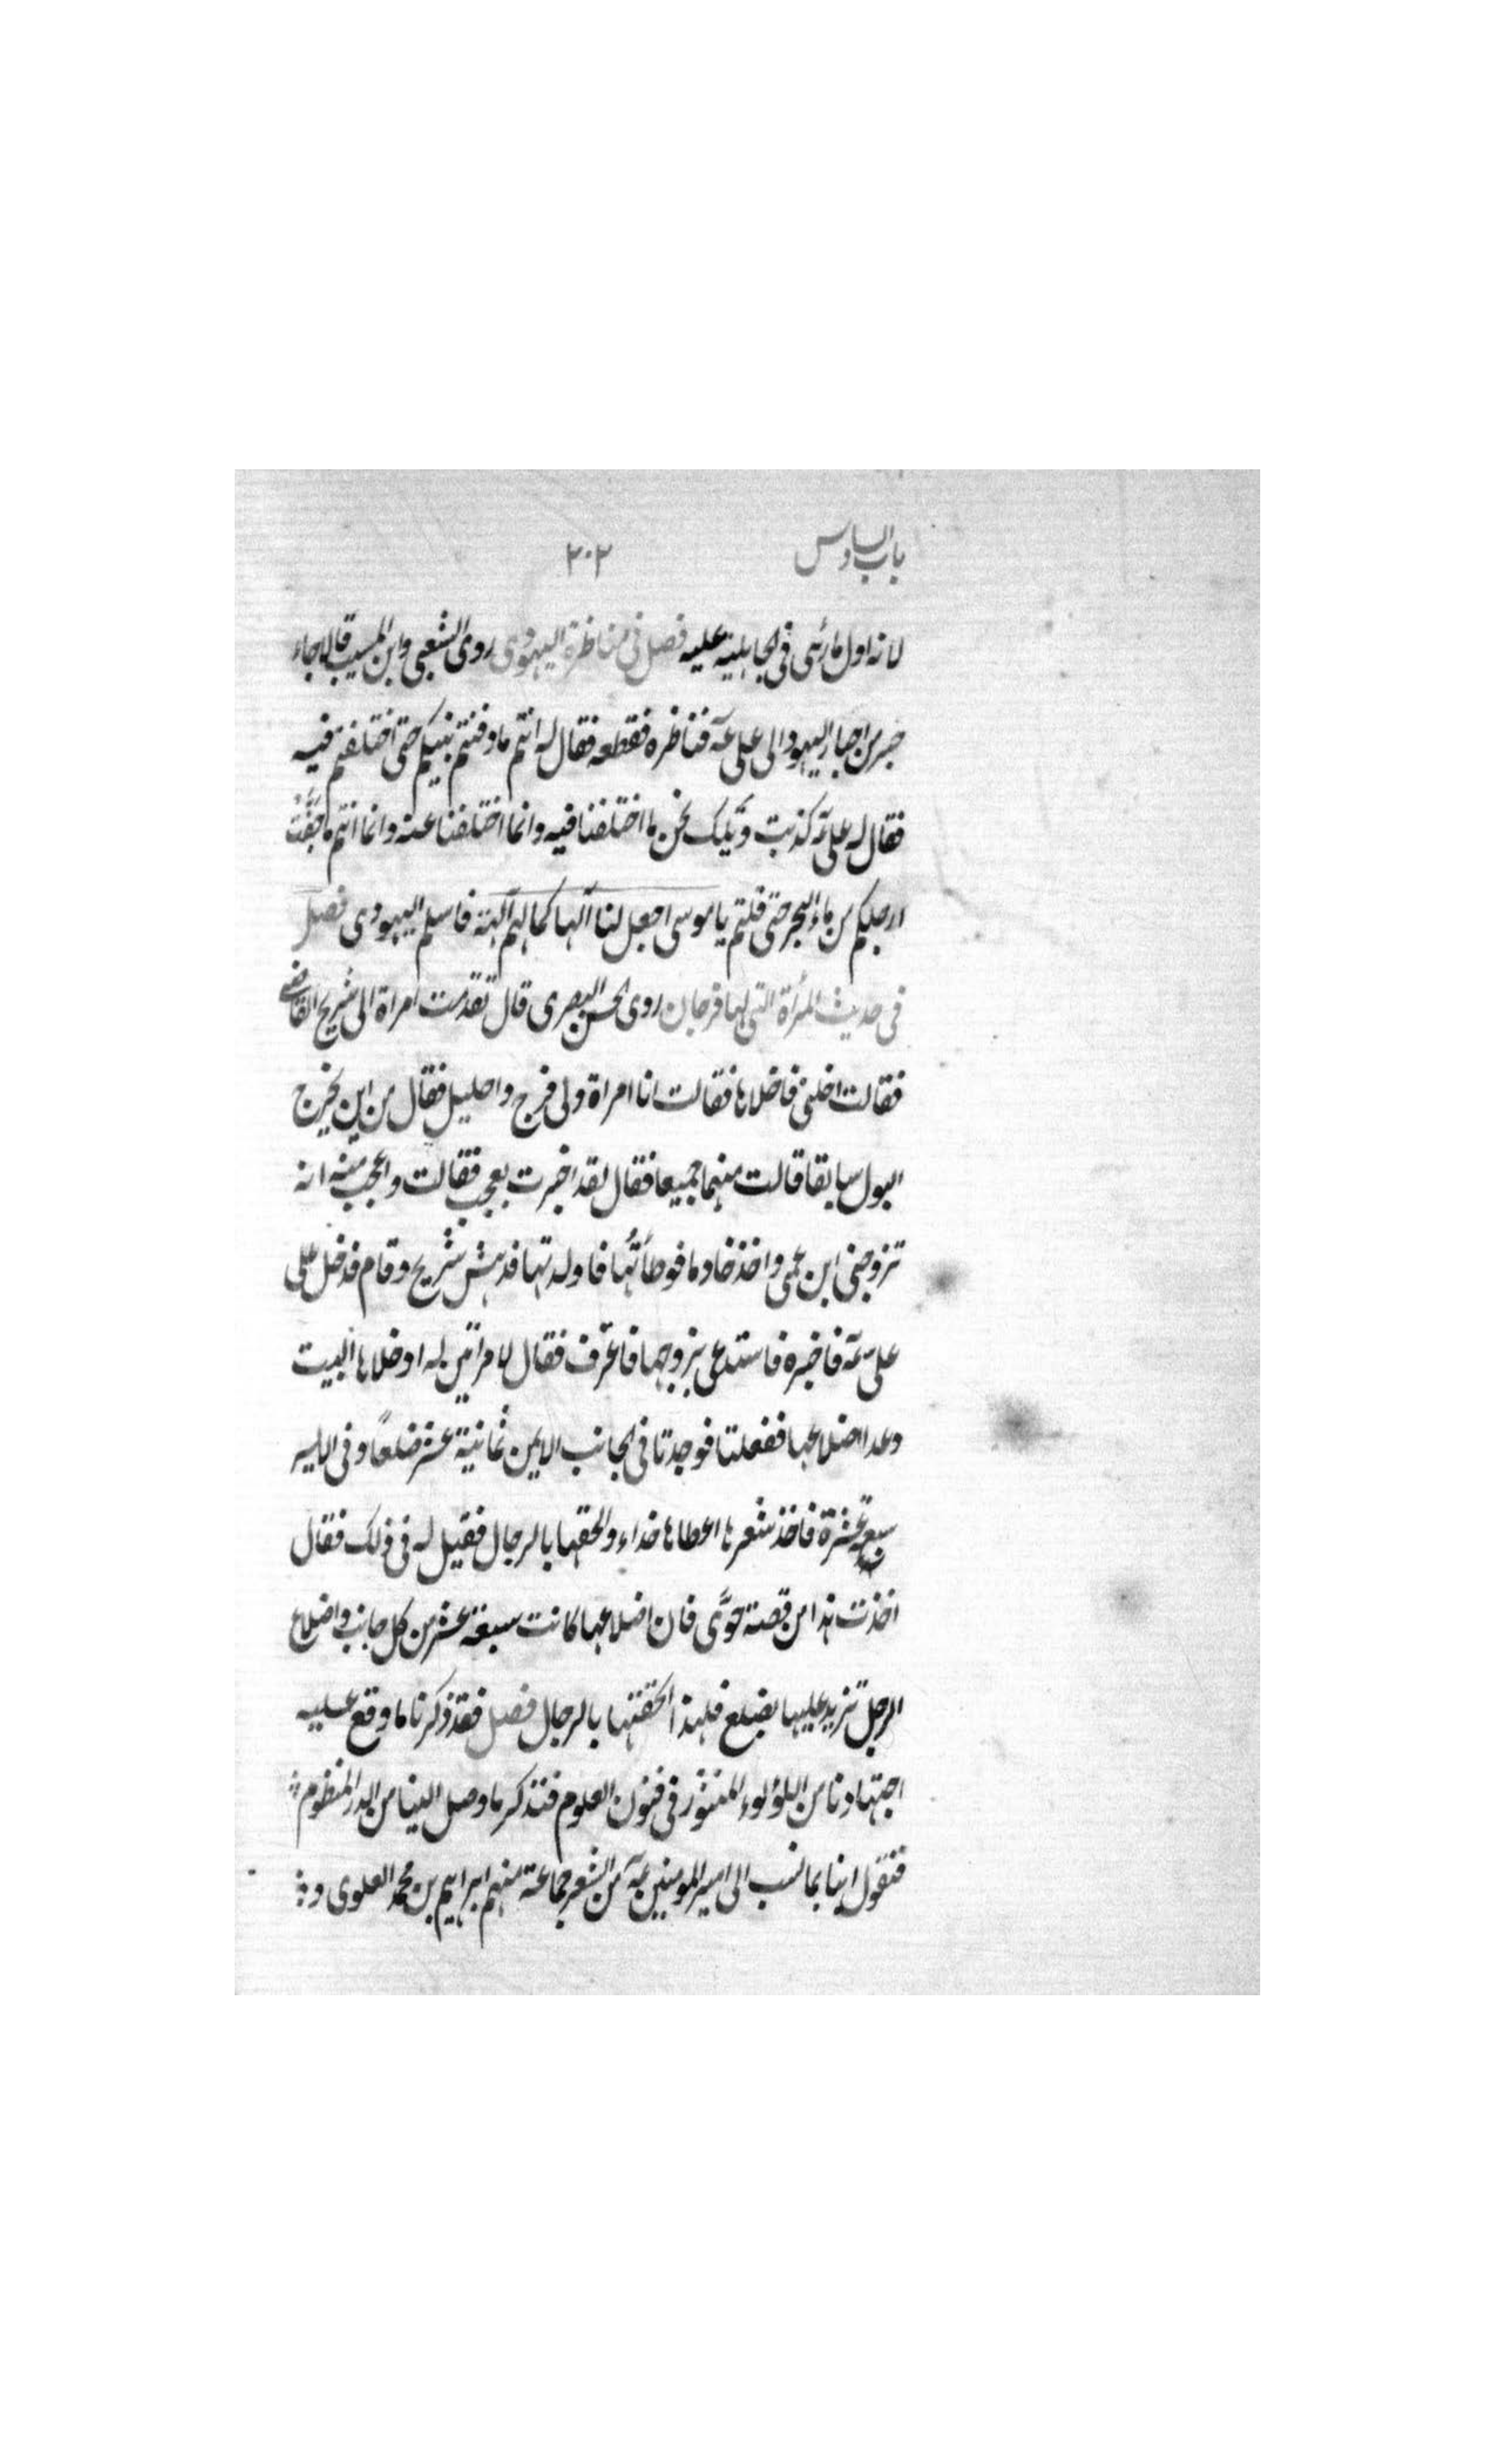 باب السادس ٢٠٢
لانه اول ما رئى فى الجاهلية عليه فصل فى مناظرة اليهودى روى الشعبى وابن المسيب قالا جاء
حبر من احبار اليهود الى على عم فناظره فقطعه فقال له انتم ما دفنتم نبيكم حتى اختلفتم فيه
فقال له على عم كذبت ويلك نحن ما اختلفنا فيه وانما اختلفنا عنه وانما انتم ما جفّت
ارجلكم من ماء البحر حتى قلتم يا موسى اجعل لنا الها كما لهم آلهة فاسلم اليهودى فصل
فى حديث المرأة التى لها فرجان روى الحسن البصرى قال تقدمت امراة الى شريح القاضى
فقالت اخلنى فاخلاها فقالت انا امراة ولى فرج واحليل فقال من اين يخرج
البول سابقا قالت منهما جميعا فقال لقد اخبرت بعجب فقالت واعجب منه انه
تزوجنى ابن عمى واخذ خادما فوطأتُها فاولدتها فدهش شريح وقام فدخل على
على عم فاخبره فاستدعى بزوجها فاعترف فقال لامراتين له ادخلاها البيت
وعدا اضلاعها ففعلتا فوجدتا فى الجانب الايمن ثمانية عشر ضلعاً وفى الايسر
سبعة عشرة فاخذ شعرها اعطاها حذاء والحقها بالرجال فقيل له فى ذلك فقال
اخذت هذا من قصة حوّى فان اضلاعها كانت سبعة عشر من كل جانب واضلاع
الرجل تزيد عليها بضلع فلهذا الحقتها بالرجال فصل فقد ذكرنا ما وقع عليه
اجتهادنا من اللؤلوء المنثور فى فنون العلوم فنذكر ما وصل الينا من الدر المنظوم
فنقول انبا بما نسب الى امير المومنين عم من الشعر جماعة منهم ابراهيم بن محمد العلوى و